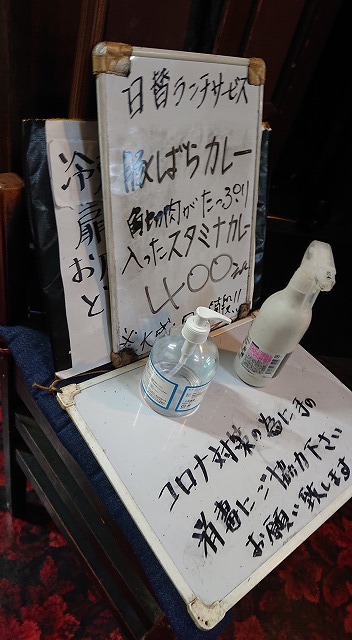 日替ランチサービス
豚ばらカレー
角切肉がたっぷり
入ったスタミナカレー
400
冷
扉
お
と
コロナ対策の為に手の
消毒にご協力下さい
お願い致します